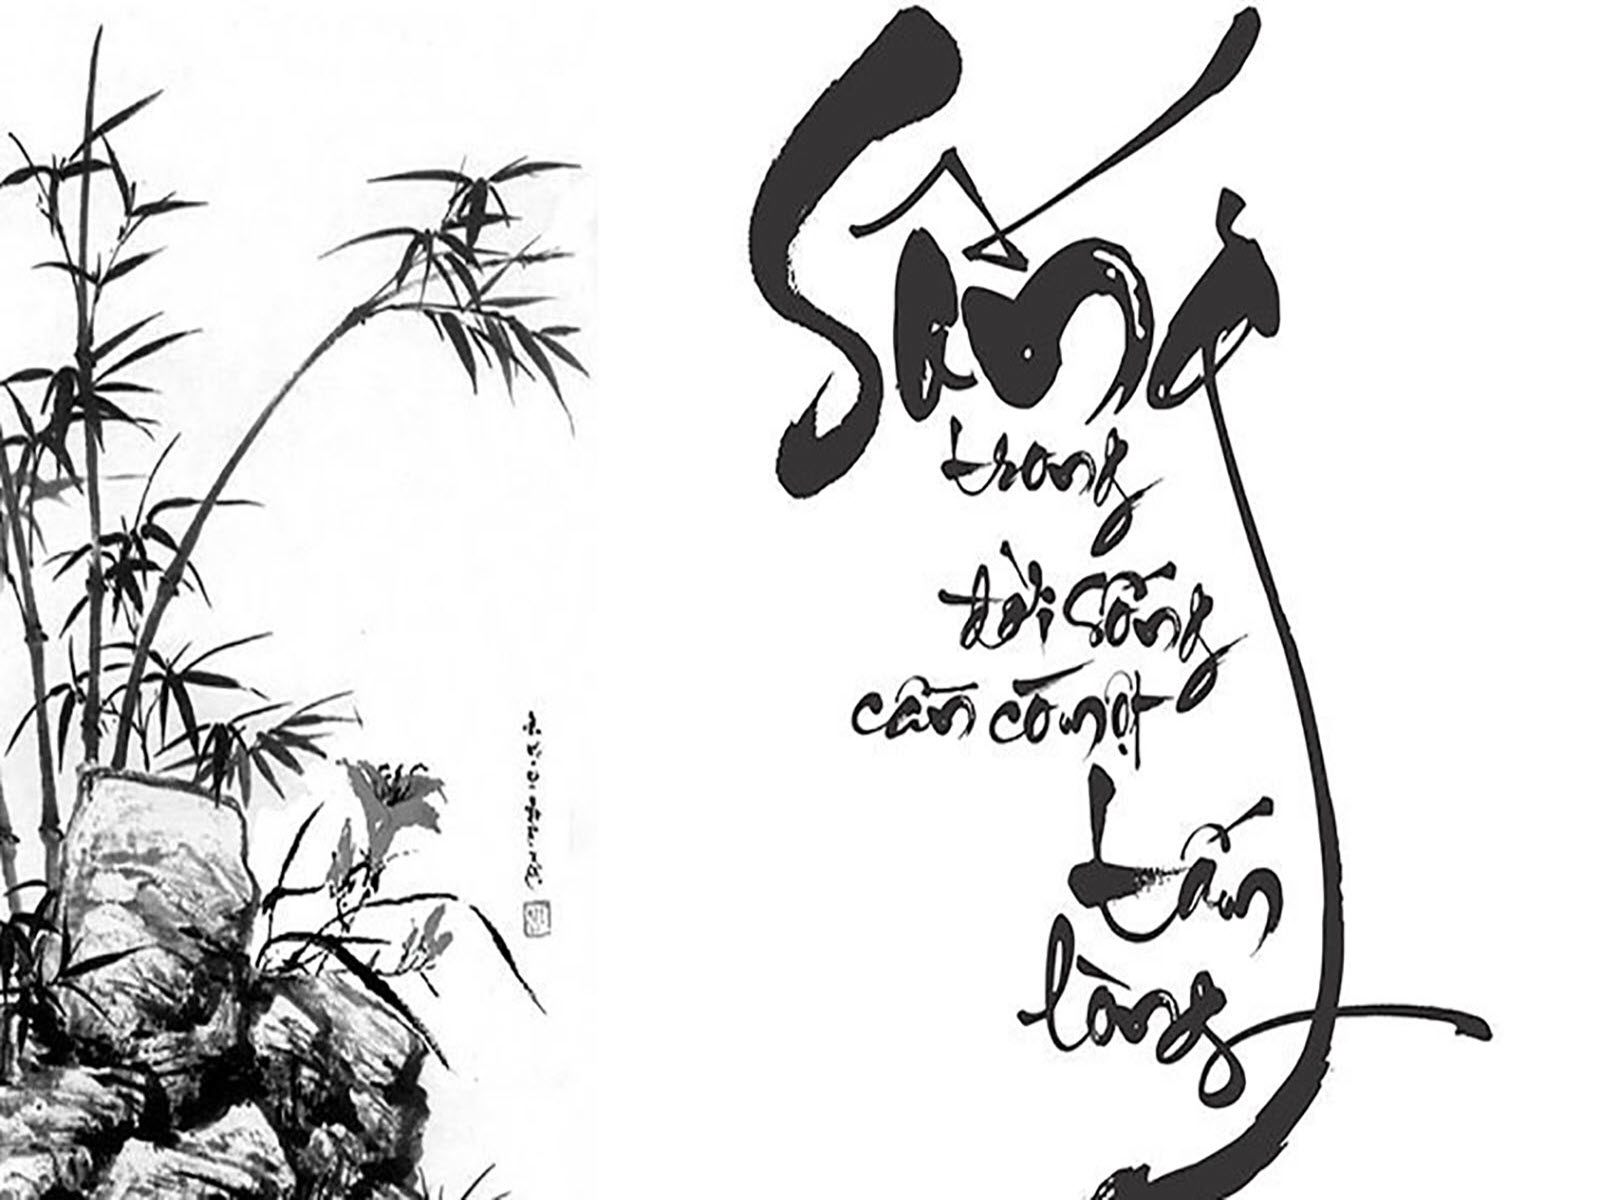 Sống
trong
đời sống
cần có một
tấm
lòng